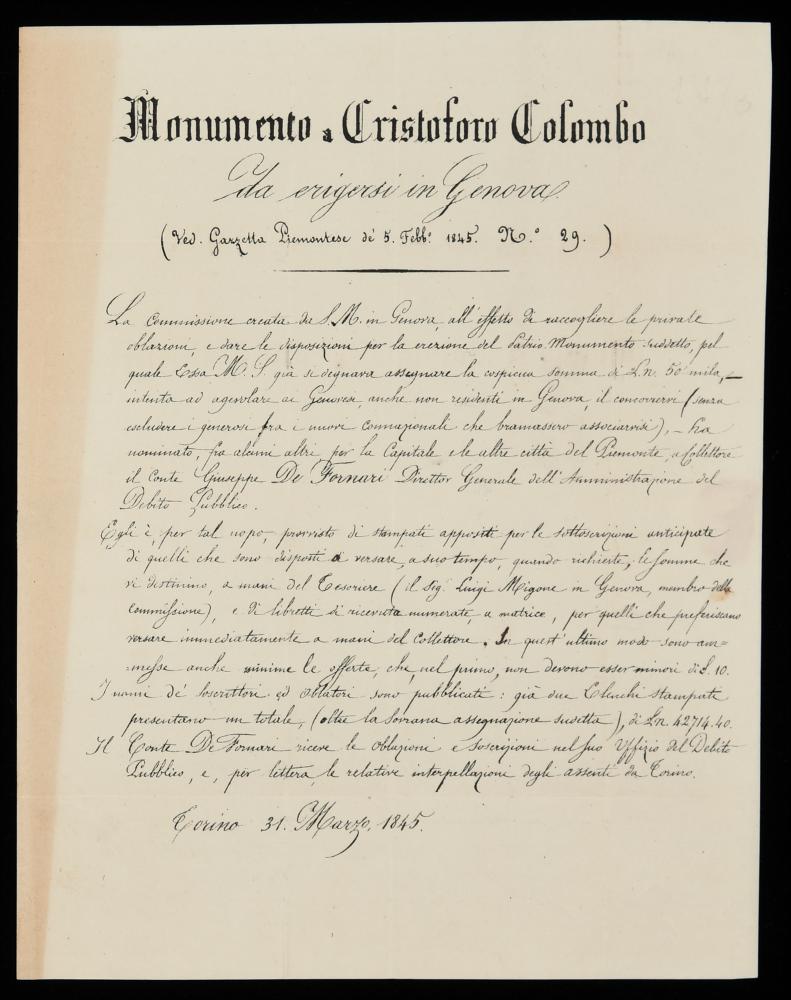 Monumento a Cristoforo Colombo
da erigersi in Genova.
(Ved. Gazzetta Piemontese de' 5. Febb.° 1845. N.° 29.)
La Commissione creata da S. M. in Genova, all'effetto di raccogliere le private
oblazioni, e dare le disposizioni per la erezione del Patrio Monumento suddetto, pel
quale Essa M. S. già si degnava assegnare la cospicua somma di Ln. 50 mila, –
intenta ad agevolare ai Genovesi, anche non residenti in Genova, il concorrervi (senza
escludere i generosi fra i nuovi connazionali che bramassero associarvisi), – ha
nominato, fra alcuni altri, per la Capitale e le altre città del Piemonte, a Collettore
il Conte Giuseppe De Fornari Direttor Generale dell'Amministrazione del
Debito Pubblico.
Egli è, per tal uopo, provvisto di stampati appositi per le sottoscrizioni anticipate
di quelli che sono disposti a versare, a suo tempo, quando richieste, le somme che
vi destinino, a mani del Tesoriere (il Sig. Luigi Migone in Genova, membro della
Commissione), e di libretti di ricevuta numerate, a matrice, per quelli che preferiscano
versare immediatamente a mani del Collettore. In quest'ultimo modo sono am=
=messe anche minime le offerte, che, nel primo, non devono esser minori di L. 10.
I nomi de' Soscrittori ed oblatori sono pubblicati: già due Elenchi stampati
presentano un totale, (oltre la Sovrana assegnazione sudetta), di Ln. 42714.40.
Il Conte De Fornari riceve le oblazioni e soscrizioni nel suo Uffizio del Debito
Pubblico, e, per lettera, le relative interpellazioni degli assenti da Torino.
Torino 31. Marzo, 1845.